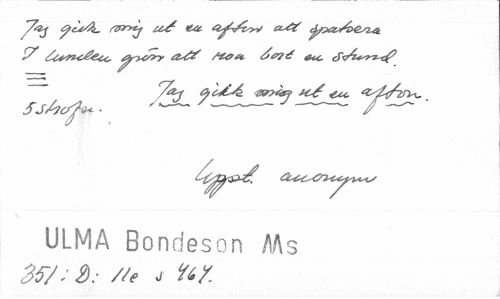 Jag gick mig ut en afton att spatsera
I lunden grön att roa bort en stund.
5 strofer.
Jag gikk mig ut en afton.
Uppt. anonym
ULMA Bondeson Ms
351: D: 11e s 464.